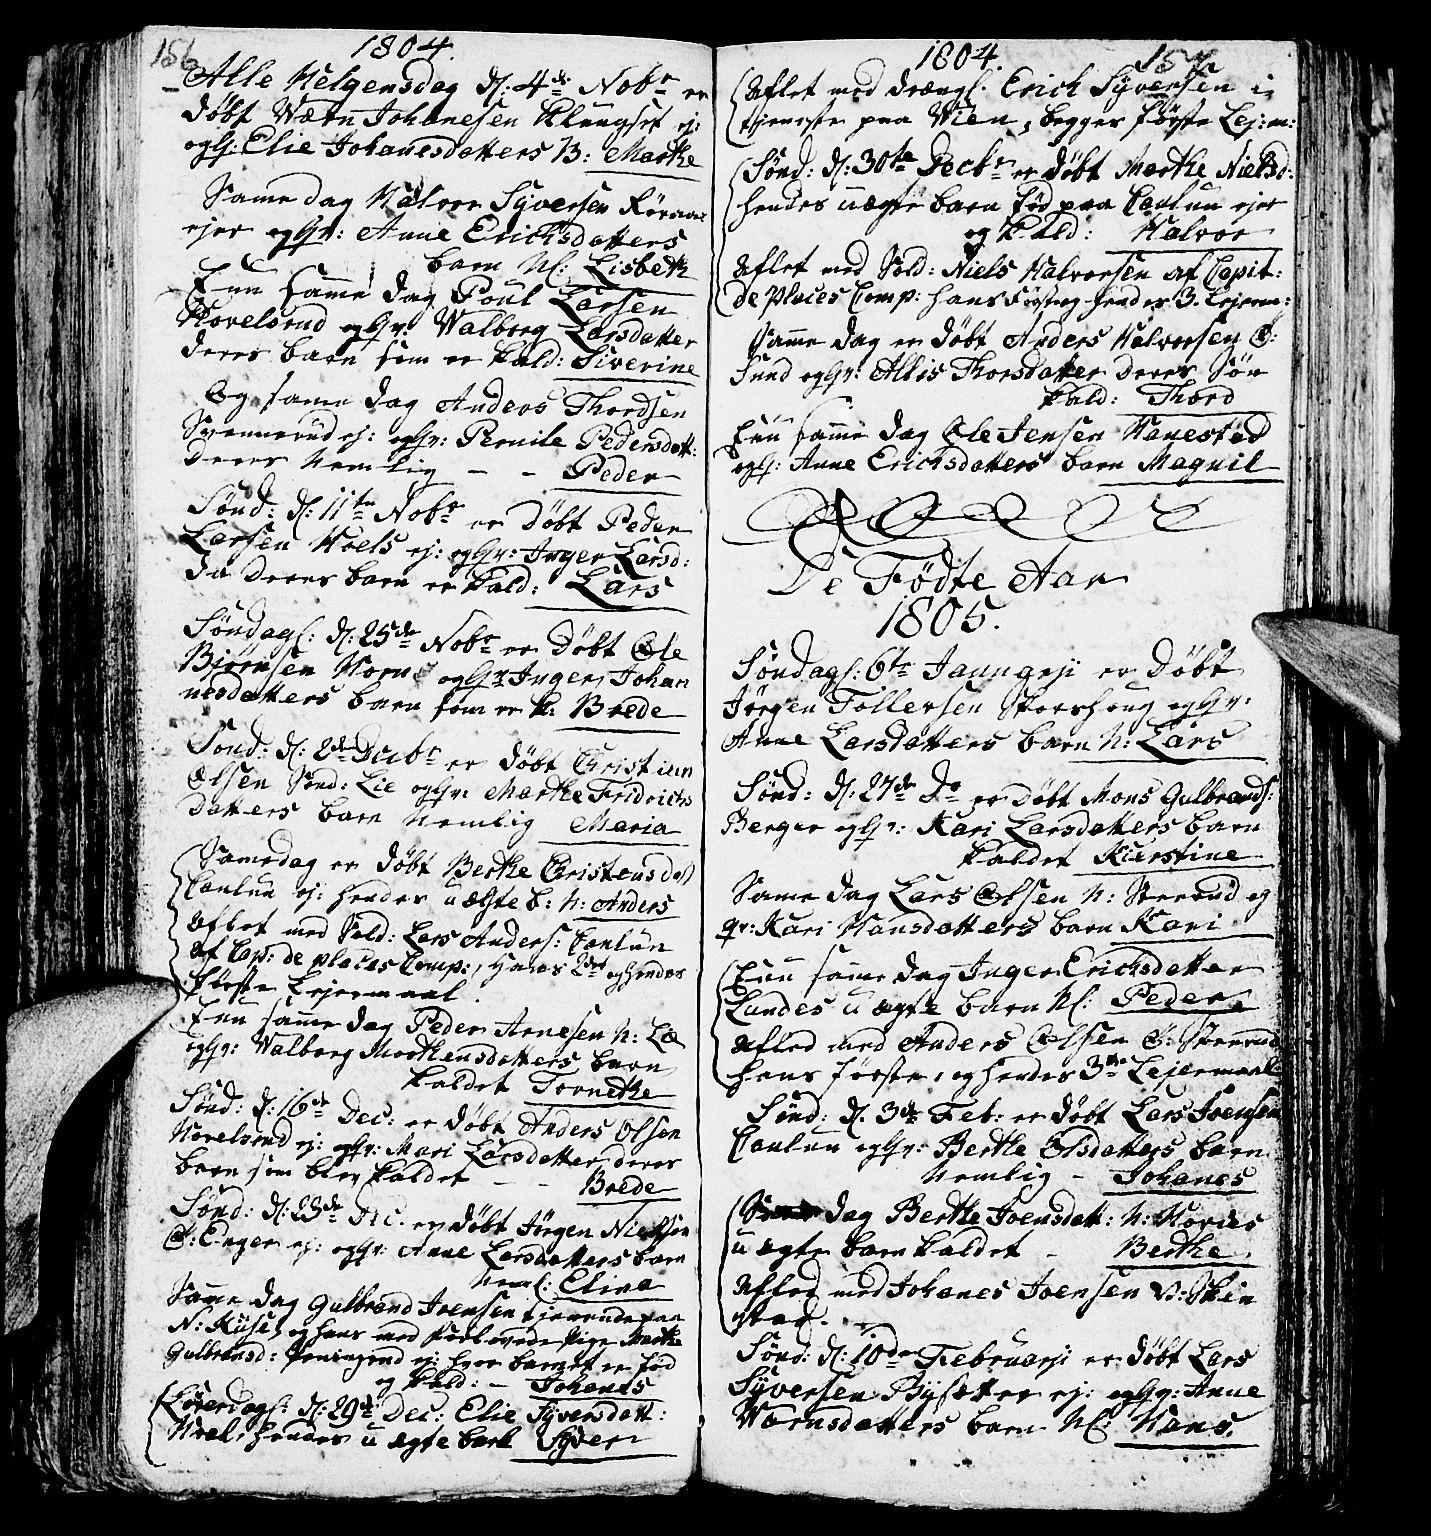 156
1804.
Alle Helgensdag d: 4de Nobr er
døbt Wætn Johanesen Klungset ej:
oghs: Elie Johanesdatters B: Marthe
Same dag Halvor Syversen
ejer ogHr: Anne Erichsdatters
barn Nl: Lisbeth
Enn samme dag Poul Larsen
Hovelsrud ogHr: Walborg Larsdatter
deres barn som er kald: Siverine
Og samme dag Anders Thordsen
Svennerud ej: ogHr: Pernile Pedersdatt:
deres Nemlig - - Peder
Sønd: d: 11te Nobr er døbt Peder
Larsen Hoels ej: ogHr: Inger Larsd:
da deres barn er kald: Lars
Søndags: d: 25de Nobr er døbt Ole
Bjørnsen Horne ogHr Inger Johan
nesdatters barn som er k: Brede
Sønd: d: 2de Decbr er døbt Christian
Olsen Sønd: Lie ogHr: Marthe Fridrichs
datters barn Nemlig Maria
Samedag er døbt Berthe Christensdatt
Caulun ej: hendes uægte b: N: Anders
aflet med Sold: Lars Anders: Caulun
af Cap: de places Comp:, Hans 2det og hendes
første Lejermaal.
Enn samme dag Peder Arnesen N: Læ
ogHr: Walborg Morthensdatters barn
kaldet Tornethe
Sønd: d: 16de Dec: er døbt Anders Olsen
Hovelsrud ej: ogHr: Mari Larsdatter deres
barn som blev kaldet - - Brede
Sønd: d: 23de Dec. er døbt Jørgen Nielsen
Ø: Enger ej: ogHr: Anne Larsdatters barn
Neml: Elina
Same dag Gulbrand Joensen tjenende paa
N: Kiise, og hans med forlovede Pige Marthe
Gulbransd: ej: hvor barnet er fød
og kald: - Johanes
Løverdags: d: 29de Dec: Elie Syversdatt:
Hvel, hendes uægte barn Syver
1804.
157
aflet med drængl. Erich Syversen i
tjeneste paa Wien, begges første Lej:m:
Sønd: d: 30te Decbr er døbt Marthe Nielsd:
hendes uægte barn fød paa Caulun ejer
og kald: Halvor
aflet med Sold: Niels Halvorsen af Capit:
de Places Comp: hans første og hendes 3. Lejerm:
Samme dag er døbt Anders Halvorsen Ø:
Sund ogHr: Allis Thorsdatter deres Søn
kald: Thord
Enn samme dag Ole Jensen Hanestad
oghs: Anne Erichsdatters barn Magnil
De Fødte Aar
1805.
Søndags: 6te Jannuarji er døbt
Jørgen Tollersen Storshoug ogHr:
Anne Larsdatters barn N: Lars
Sønd: d: 27de Do er døbt Mons Gulbrands:
Berger ogHr: Kari Larsdatters barn
kaldet Kierstine
Same dag Lars Olsen N: Steerud og
qv: Kari Hansdatters barn Kari
Enn same dag Inger Erichsdatter
Landes uægte barn Nl: Peder
afled med Anders Olsen Ø: Steerud
hans første, og hendes 3die Lejermaal
Sønd: d. 3de Feb: er døbt Lars Joensen
Caulun ogHr: Berthe Olsdatters barn
Nemlig - Johanes
Same dag Berthe Joensdatt: N: Hordes
uægte barn kaldet - Berthe
afled med Johanes Joensen V: Skin
stad.
Sønd: d: 10de Februarji er døbt Lars
Syversen Bysætter ej: ogHr: Anne
Warnsdatters barn Nl: Hans.